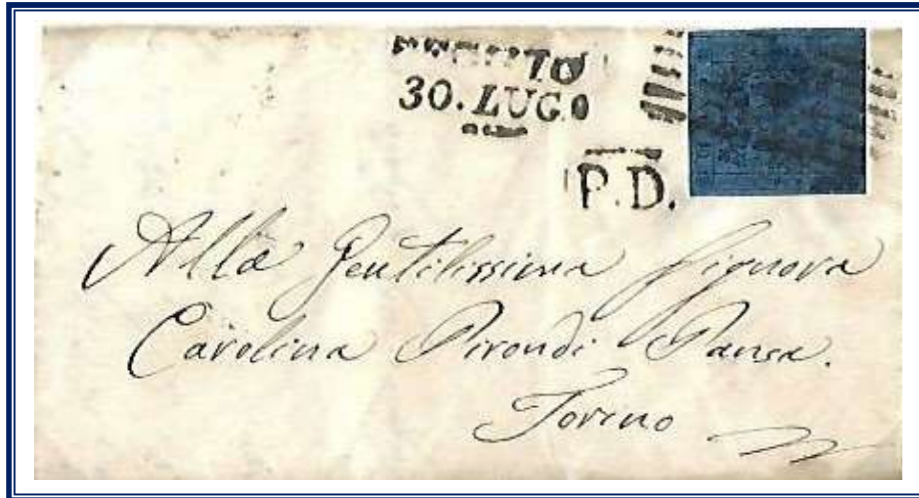 30. LUGO
P.D.
Alla Gentilissima Signora
Carolina Pirondi Pansa.
Torino